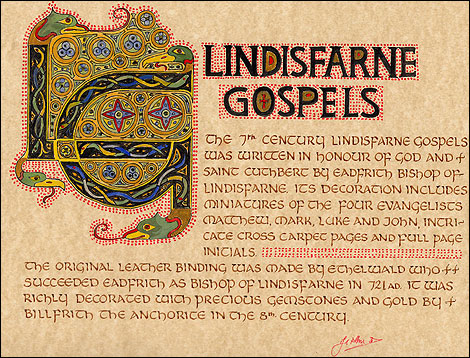 LINDISFARNE
GOSPELS
THE 7TH CENTURY LINDISFARNE GOSPELS
WAS WRITTEN IN HONOUR OF GOD AND +
SAINT CUTHBERT BY EADFRITH BISHOP OF
LINDISFARNE. ITS DECORATION INCLUDES
MINIATURES OF THE FOUR EVANGELISTS
MATTHEW, MARK, LUKE AND JOHN, INTRI-
CATE CROSS CARPET PAGES AND FULL PAGE
INITIALS.
THE ORIGINAL LEATHER BINDING WAS MADE BY ETHELWALD WHO ++
SUCCEEDED EADFRITH AS BISHOP OF LINDISFARNE IN 721 AD. IT WAS
RICHLY DECORATED WITH PRECIOUS GEMSTONES AND GOLD BY +
BILLFRITH THE ANCHORITE IN THE 8TH CENTURY.